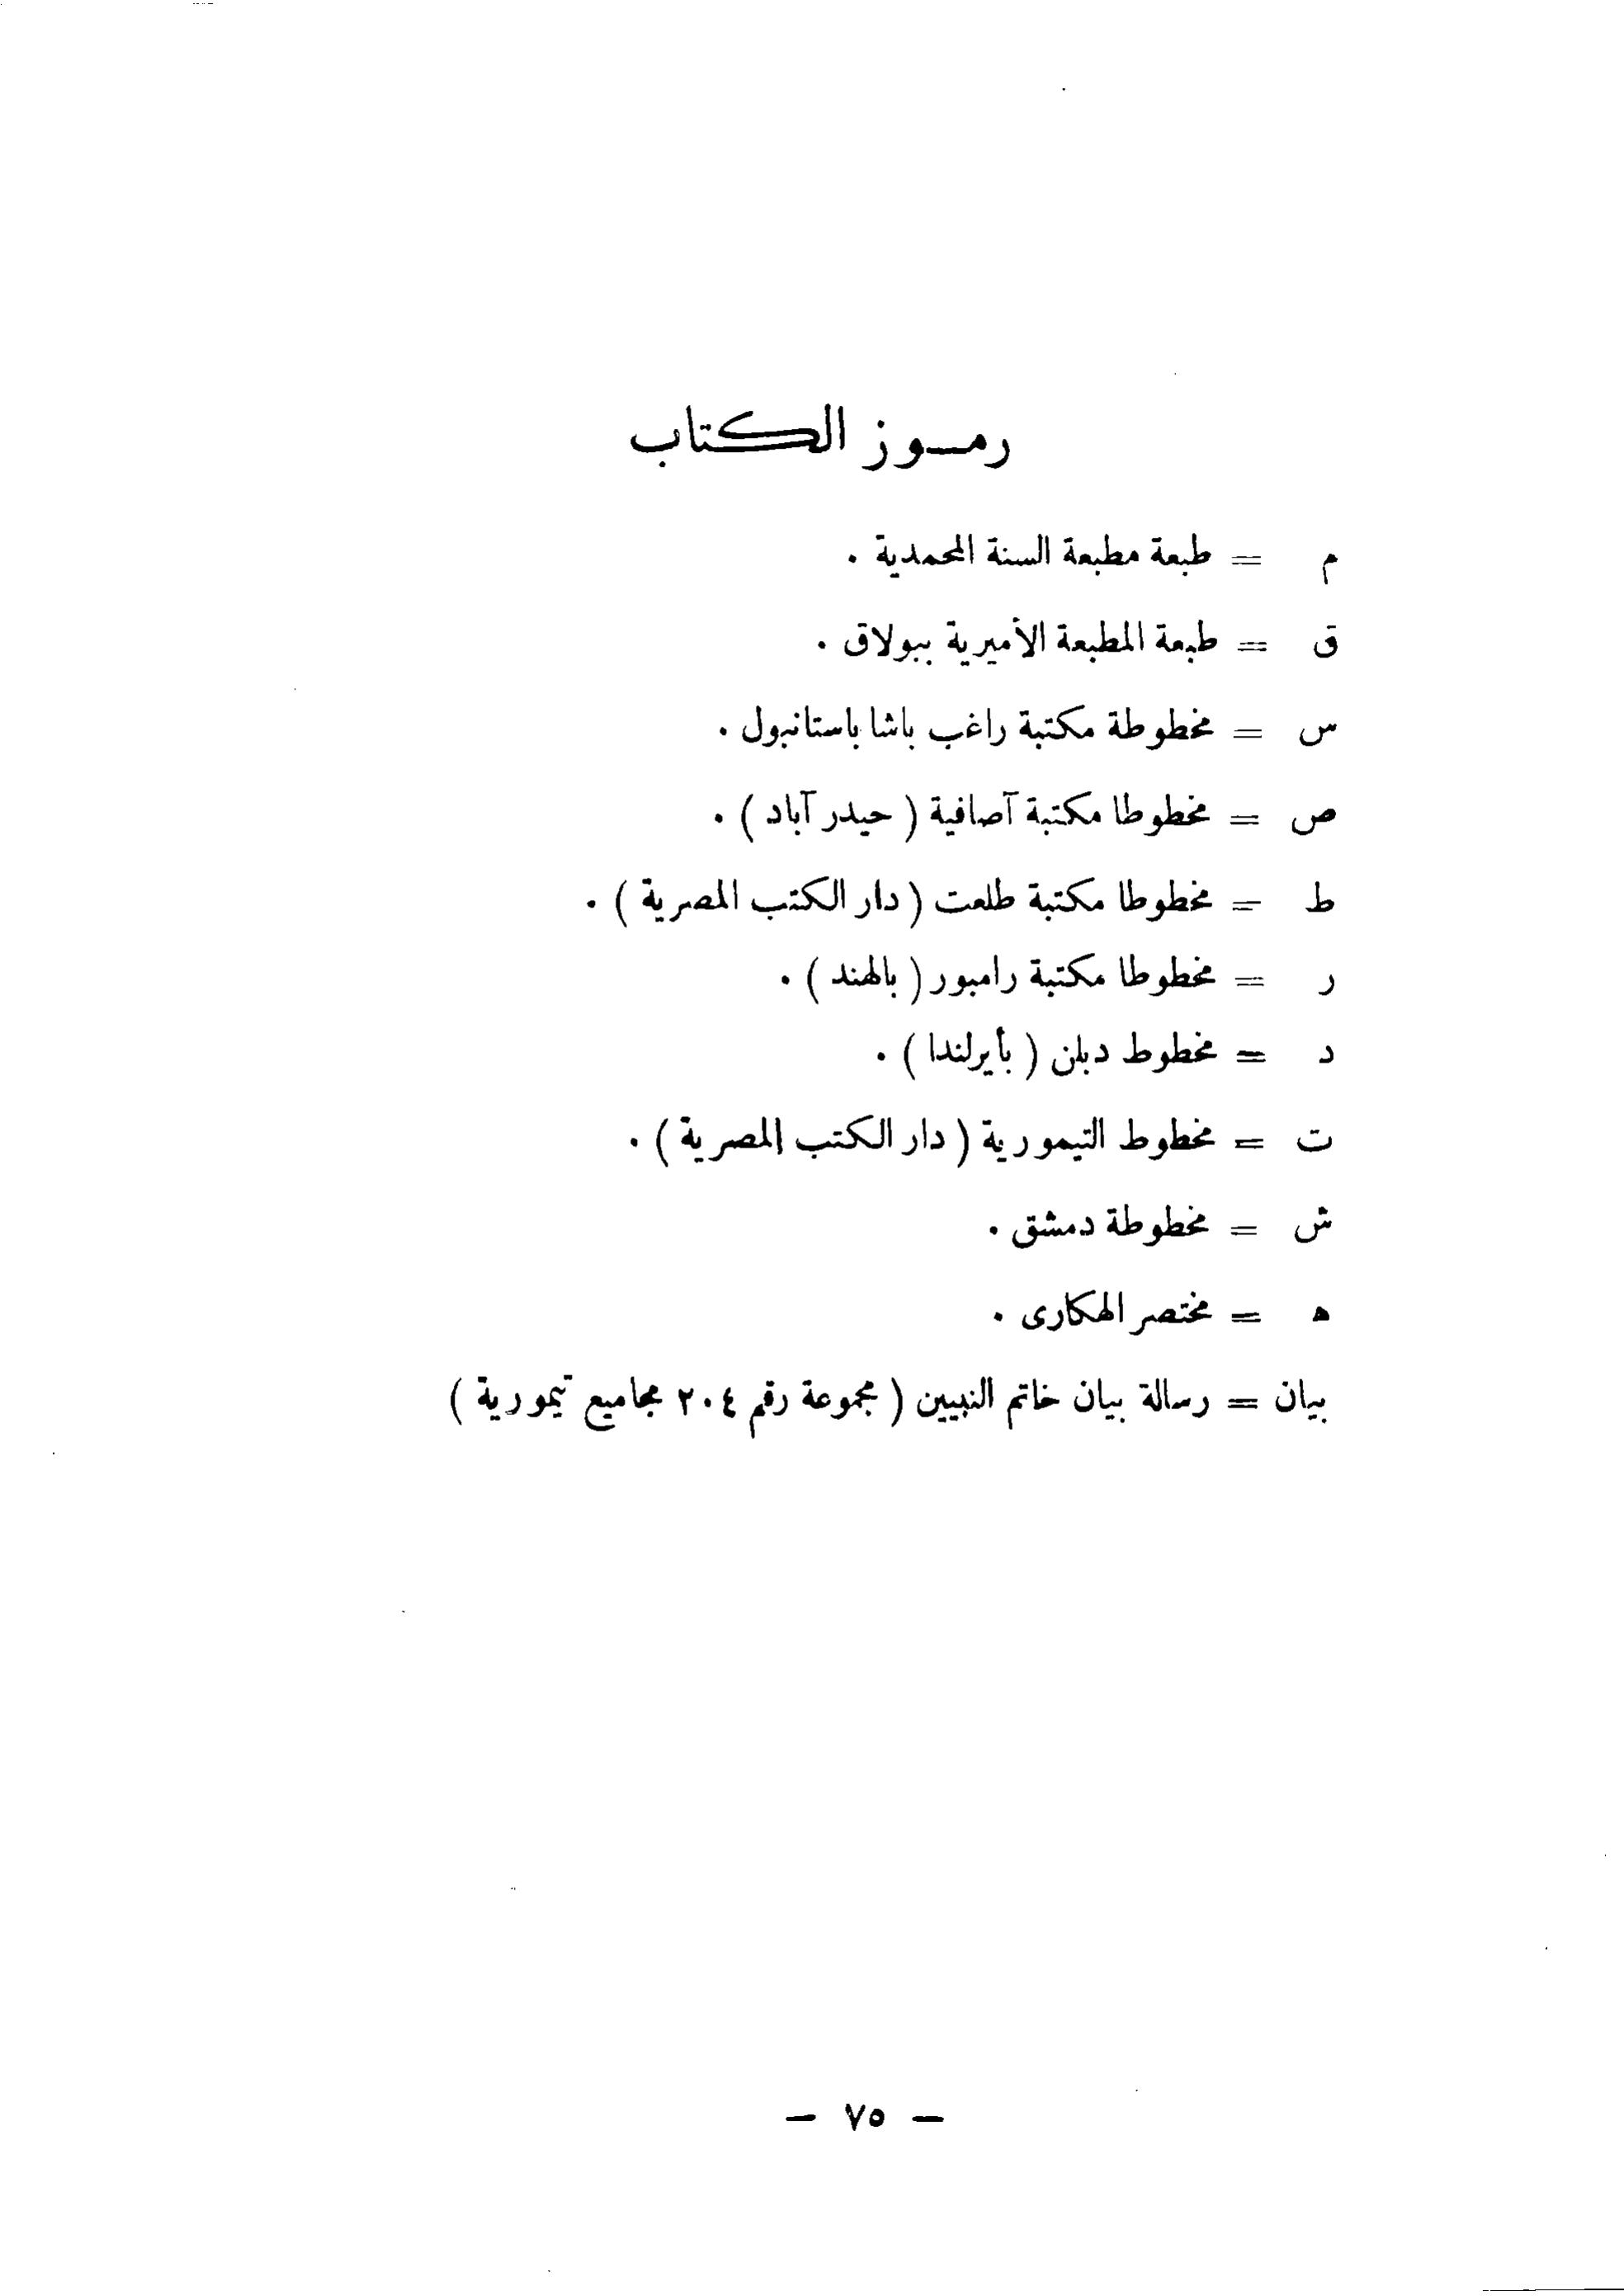 رمـوز الكتاب
م = طبعة مطبعة السنة المحمدية .
ق = طبعة المطبعة الأميرية ببولاق .
س = مخطوطة مكتبة راغب باشا باستانبول .
ص = مخطوطا مكتبة آصافية ( حيدر آباد ) .
ط = مخطوطا مكتبة طلعت ( دار الكتب المصرية ) .
ر = مخطوطا مكتبة رامبور ( بالهند ) .
د = مخطوط دبلن ( بأيرلندا ) .
ت = مخطوط التيمورية ( دار الكتب المصرية ) .
ش = مخطوطة دمشق .
ه = مختصر الهكارى .
بيان = رسالة بيان خاتم النبيين ( مجموعة رقم ٢٠٤ مجاميع تيمورية )
— ٧٥ —